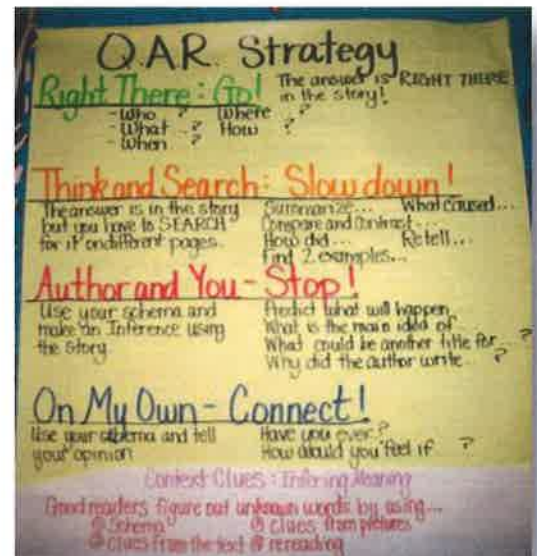 Q.A.R. Strategy
Right There: Go!
The answer is RIGHT THERE
in the story!
- Who ? Where ?
- What ..? How ?
- When ?
Think and Search: Slow down!
The answer is in the story
but you have to SEARCH
for it on different pages.
Summarize... What caused...
Compare and Contrast...
How did... Retell...
Find 2 examples...
Author and You - Stop!
Use your schema and
make an Inference using
the story.
Predict what will happen
What is the main idea of
What could be another title for ...?
Why did the author write ...?
On My Own - Connect!
Use your schema and tell
your opinion
Have you ever ?
How would you feel if ?
Context Clues: Infering Meaning
Good readers figure out unknown words by using...
@ Schema @ clues from pictures
@ clues from the text @ rereading